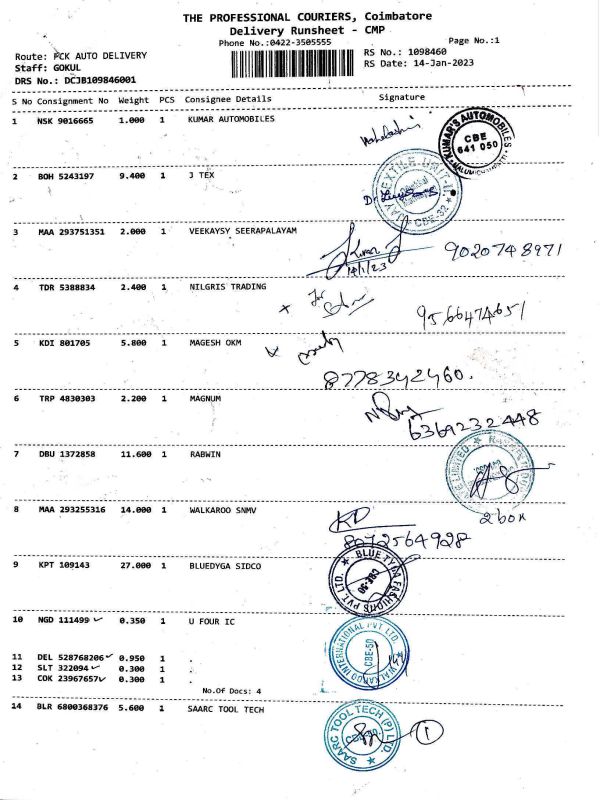 THE PROFESSIONAL COURIERS, Coimbatore
Delivery Runsheet - CMP
Phone No.:0422-3505555
Page No.:1
Route: PCK AUTO DELIVERY
RS No.: 1098460
Staff: GOKUL
RS Date: 14-Jan-2023
DRS No.: DCJB109846001
S No Consignment No Weight PCS Consignee Details Signature
1 NSK 9016665 1.000 1 KUMAR AUTOMOBILES
KUMAR'S AUTOMOBILES
CBE
641 050
2 BOH 5243197 9.400 1 J TEX
TEXTILE UNIT-II
CBE-32
3 MAA 293751351 2.000 1 VEEKAYSY SEERAPALAYAM
9020748971
14/1/23
4 TDR 5388834 2.400 1 NILGRIS TRADING
for
9566474651
5 KDI 801705 5.800 1 MAGESH OKM
8778342460.
6 TRP 4830303 2.200 1 MAGNUM
6369232448
7 DBU 1372858 11.600 1 RABWIN
LIMITED
8 MAA 293255316 14.000 1 WALKAROO SNMV
2 box
KD
8072564928
9 KPT 109143 27.000 1 BLUEDYGA SIDCO
BLUE TYGA FASHIONS PVT LTD.
CBE-50
10 NGD 111499 0.350 1 U FOUR IC
WALKAROO INTERNATIONAL PVT LTD.
CBE-50
11 DEL 528768206 0.950 1 .
12 SLT 322094 0.300 1 .
13 COK 23967657 0.300 1 .
No.Of Docs: 4
14 BLR 6800368376 5.600 1 SAARC TOOL TECH
SAARC TOOL TECH (P) LTD.
1